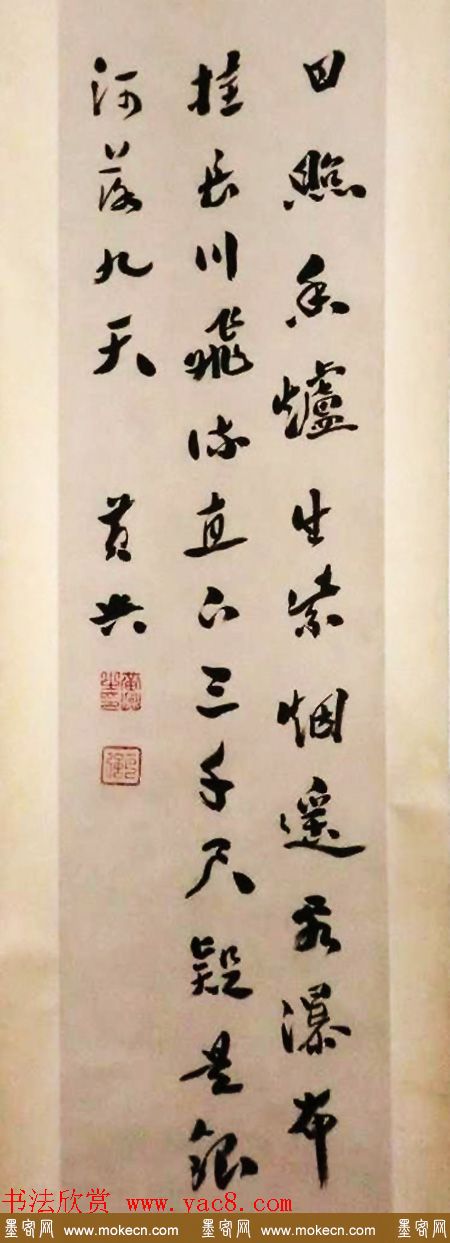 日照香爐生紫烟遥看瀑布
挂長川飛流直下三千尺疑是銀
河落九天 黄興
书法欣赏 www.yac8.com
墨客网 www.mokecn.com 墨客网 www.mokecn.com 墨客网